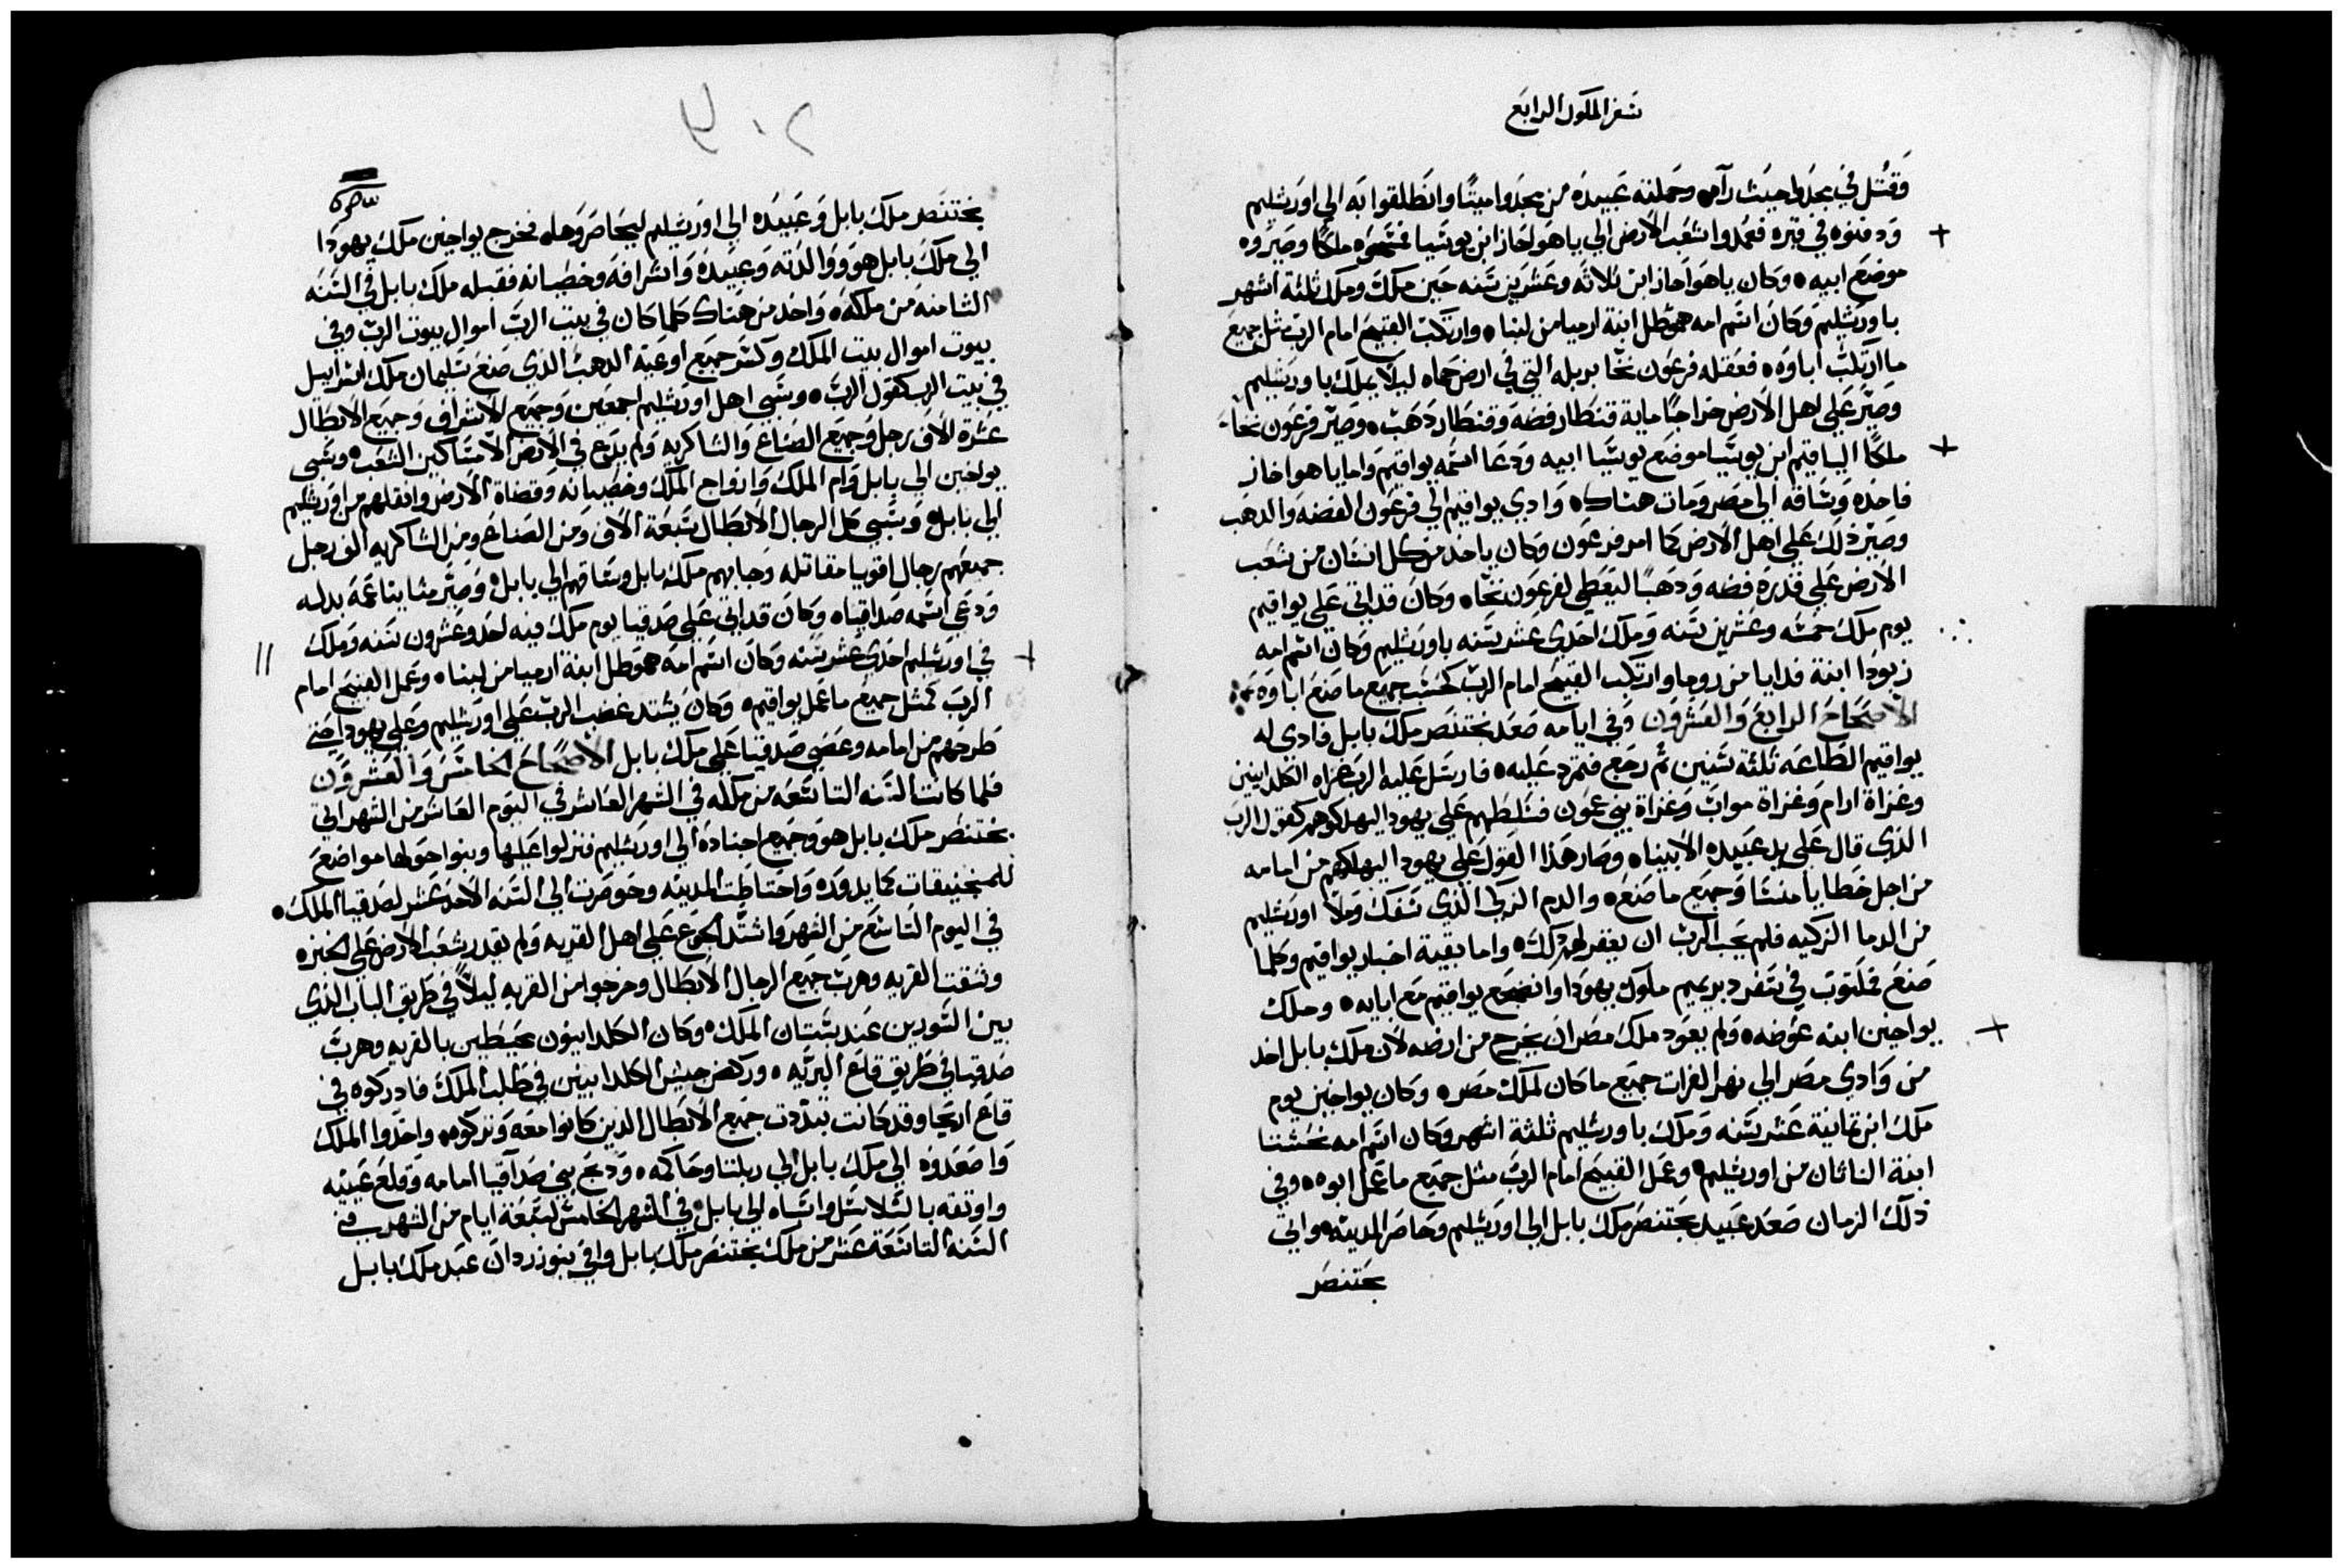 سفر الملوك الرابع
وقتل في مجدوا حيث رآه وحملته عبيده من مجدوا ميتًا وانطلقوا به الي اورشليم
ودفنوه في قبره فعمدوا شعب الارض الي ياهواحاز ابن يوشيا فمسحوه ملكًا وصيروه
موضع ابيه وكان ياهواحاز ابن ثلاثه وعشرين سنه حين ملك وملك ثلثة اشهر
باورشليم وكان اسم امه حموطل ابنة ارميا من لبنا وارتكب القبيح امام الرب مثل جميع
ما ارتكب اباوه فعقله فرعون نخا بربله التي في ارض حماه ليلا يملك باورشليم
وصير علي اهل الارض خراجًا ماية قنطار فضه وقنطار دهب وصير فرعون نخا
ملكًا الياقيم ابن يوشيا موضع يوشيا ابيه ودعا اسمه يواقيم واما ياهواحاز
فاخذه وساقه الي مصر ومات هناك وادي يواقيم الي فرعون الفضه والدهب
وصير ذلك علي اهل الارض كما امر فرعون وكان ياخد من كل انسان من شعب
الارض علي قدره فضه ودهبًا ليعطي لفرعون نخاه وكان قد اتي علي يواقيم
يوم ملك خمسه وعشرين سنه وملك احدي عشر سنه باورشليم وكان اسم امه
زبودا ابنة فدايا من روما وارتكب القبيح امام الرب كحسب جميع ما صنع اباوه
الاصحاح الرابع والعشرون وفي ايامه صعد بختنصر ملك بابل فادي له
يواقيم الطاعه ثلثة سنين ثم رجع فتمرد عليه فارسل عليه الرب غزاه الكلدانيين
وغزاة ارام وغزاة مواب وغزاة بني عمون فسلطهم علي يهودا ليهلكوهم كقول الرب
الذي قال علي يد عبيده الانبياه وصار هذا القول علي يهودا ليهلكهم من امامه
من اجل خطايا منسا وجميع ما صنع والدم الزكي الذي سفك وملا اورشليم
من الدما الزكيه فلم يحب الرب ان يغفر لهم ذلك واما بقية اخبار يواقيم وكلما
صنع مكتوب في سفر دبريميم ملوك يهودا وانضجع يواقيم مع ابايه وملك
يواخين ابنه عوضه ولم يعود ملك مصر ان يخرج من ارضه لان ملك بابل اخد
من وادي مصر الي نهر الفرات جميع ما كان لملك مصر وكان يواخين يوم
ملك ابن تمانية عشر سنه وملك باورشليم ثلثة اشهر وكان اسم امه نحشتا
ابنة الناثان من اورشليم وعمل القبيح امام الرب مثل جميع ما عمل ابوه وفي
ذلك الزمان صعد عبيد بختنصر ملك بابل الي اورشليم وحاصر المدينه واتي
بختنصر
بختنصر ملك بابل وعبيده الي اورشليم ليحاصروها فخرج يواخين ملك يهودا
الي ملك بابل هو ووالدته وعبيده واشرافه وخصيانه فقبله ملك بابل في السنه
الثامنه من ملكه واخد من هناك كلما كان في بيت الرب اموال بيوت الرب وفي
بيوت اموال بيت الملك وكسر جميع اوعية الدهب الذي صنع سليمان ملك اسراييل
في بيت الرب كقول الرب وسبي اهل اورشليم اجمعين وجميع الاشراف وجميع الابطال
عشرة الاف رجل وجميع الصناع والشاكريه ولم يدع في الارض الا مساكين الشعب وسبي
يواخين الي بابل وام الملك وازواج الملك وخصيانه وقضاة الارض وانقلهم من اورشليم
الي بابل وسبي كل الرجال الابطال سبعة الاف ومن الصناع ومن الشاكريه الف رجل
جميعهم رجال اقويا مقاتله وجابهم ملك بابل وساقهم الي بابل وصير متانيا عمه بدله
ودعي اسمه صداقياه وكان قد اتي علي صدقيا يوم ملك فيه احد وعشرون سنه وملك
في اورشليم احدي عشر سنه وكان اسم امه حموطل ابنة ارميا من لبنا وعمل القبيح امام
الرب كمثل جميع ما عمل يواقيم وكان يشتد غضب الرب علي اورشليم وعلي يهودا حتي
طرحهم من امامه وعصي صدقيا علي ملك بابل الاصحاح الخامس والعشرون
فلما كانت السنه التاسعه من ملكه في الشهر العاشر في اليوم العاشر من الشهر اتي
بختنصر ملك بابل هو وجميع اجناده الي اورشليم فنزلوا عليها وبنوا حولها مواضع
للمنجنيقات كما يدوره واحتاطت المدينه وحوصرت الي السنه الاحد عشر لصدقيا الملك
في اليوم التاسع من الشهر واشتد الجوع علي اهل القريه ولم يقدر شعب الارض علي الخبزه
ونتقت القريه وهرب جميع الرجال الابطال وخرجوا من القريه ليلاً في طريق الباب الذي
بين السورين عند بستان الملك وكان الكلدانيون محيطين بالقريه وهرب
صدقيا في طريق قاع البريه وركض جيش الكلدانيين في طلب الملك فادركوه في
قاع اريحا وقد كانت تبددت جميع الابطال الدين كانوا معه وتركوه واخدوا الملك
واصعدوه الي ملك بابل الي ربلتا وحاكمه ودبح بني صداقيا امامه وقلع عينيه
واوثقه بالسلاسل واتساه الي بابل في الشهر الخامس لسبعة ايام من الشهر في
السنه التاسعة عشر من ملك بختنصر ملك بابل وافي نبوزردان عبد ملك بابل